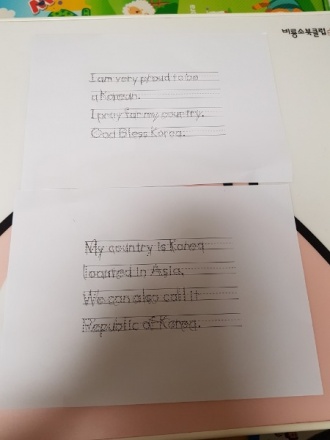 비룡소북클럽
I am very proud to be
a Korean.
I pray for my country.
God Bless Korea.
My country is Korea
located in Asia.
We can also call it
Republic of Korea.